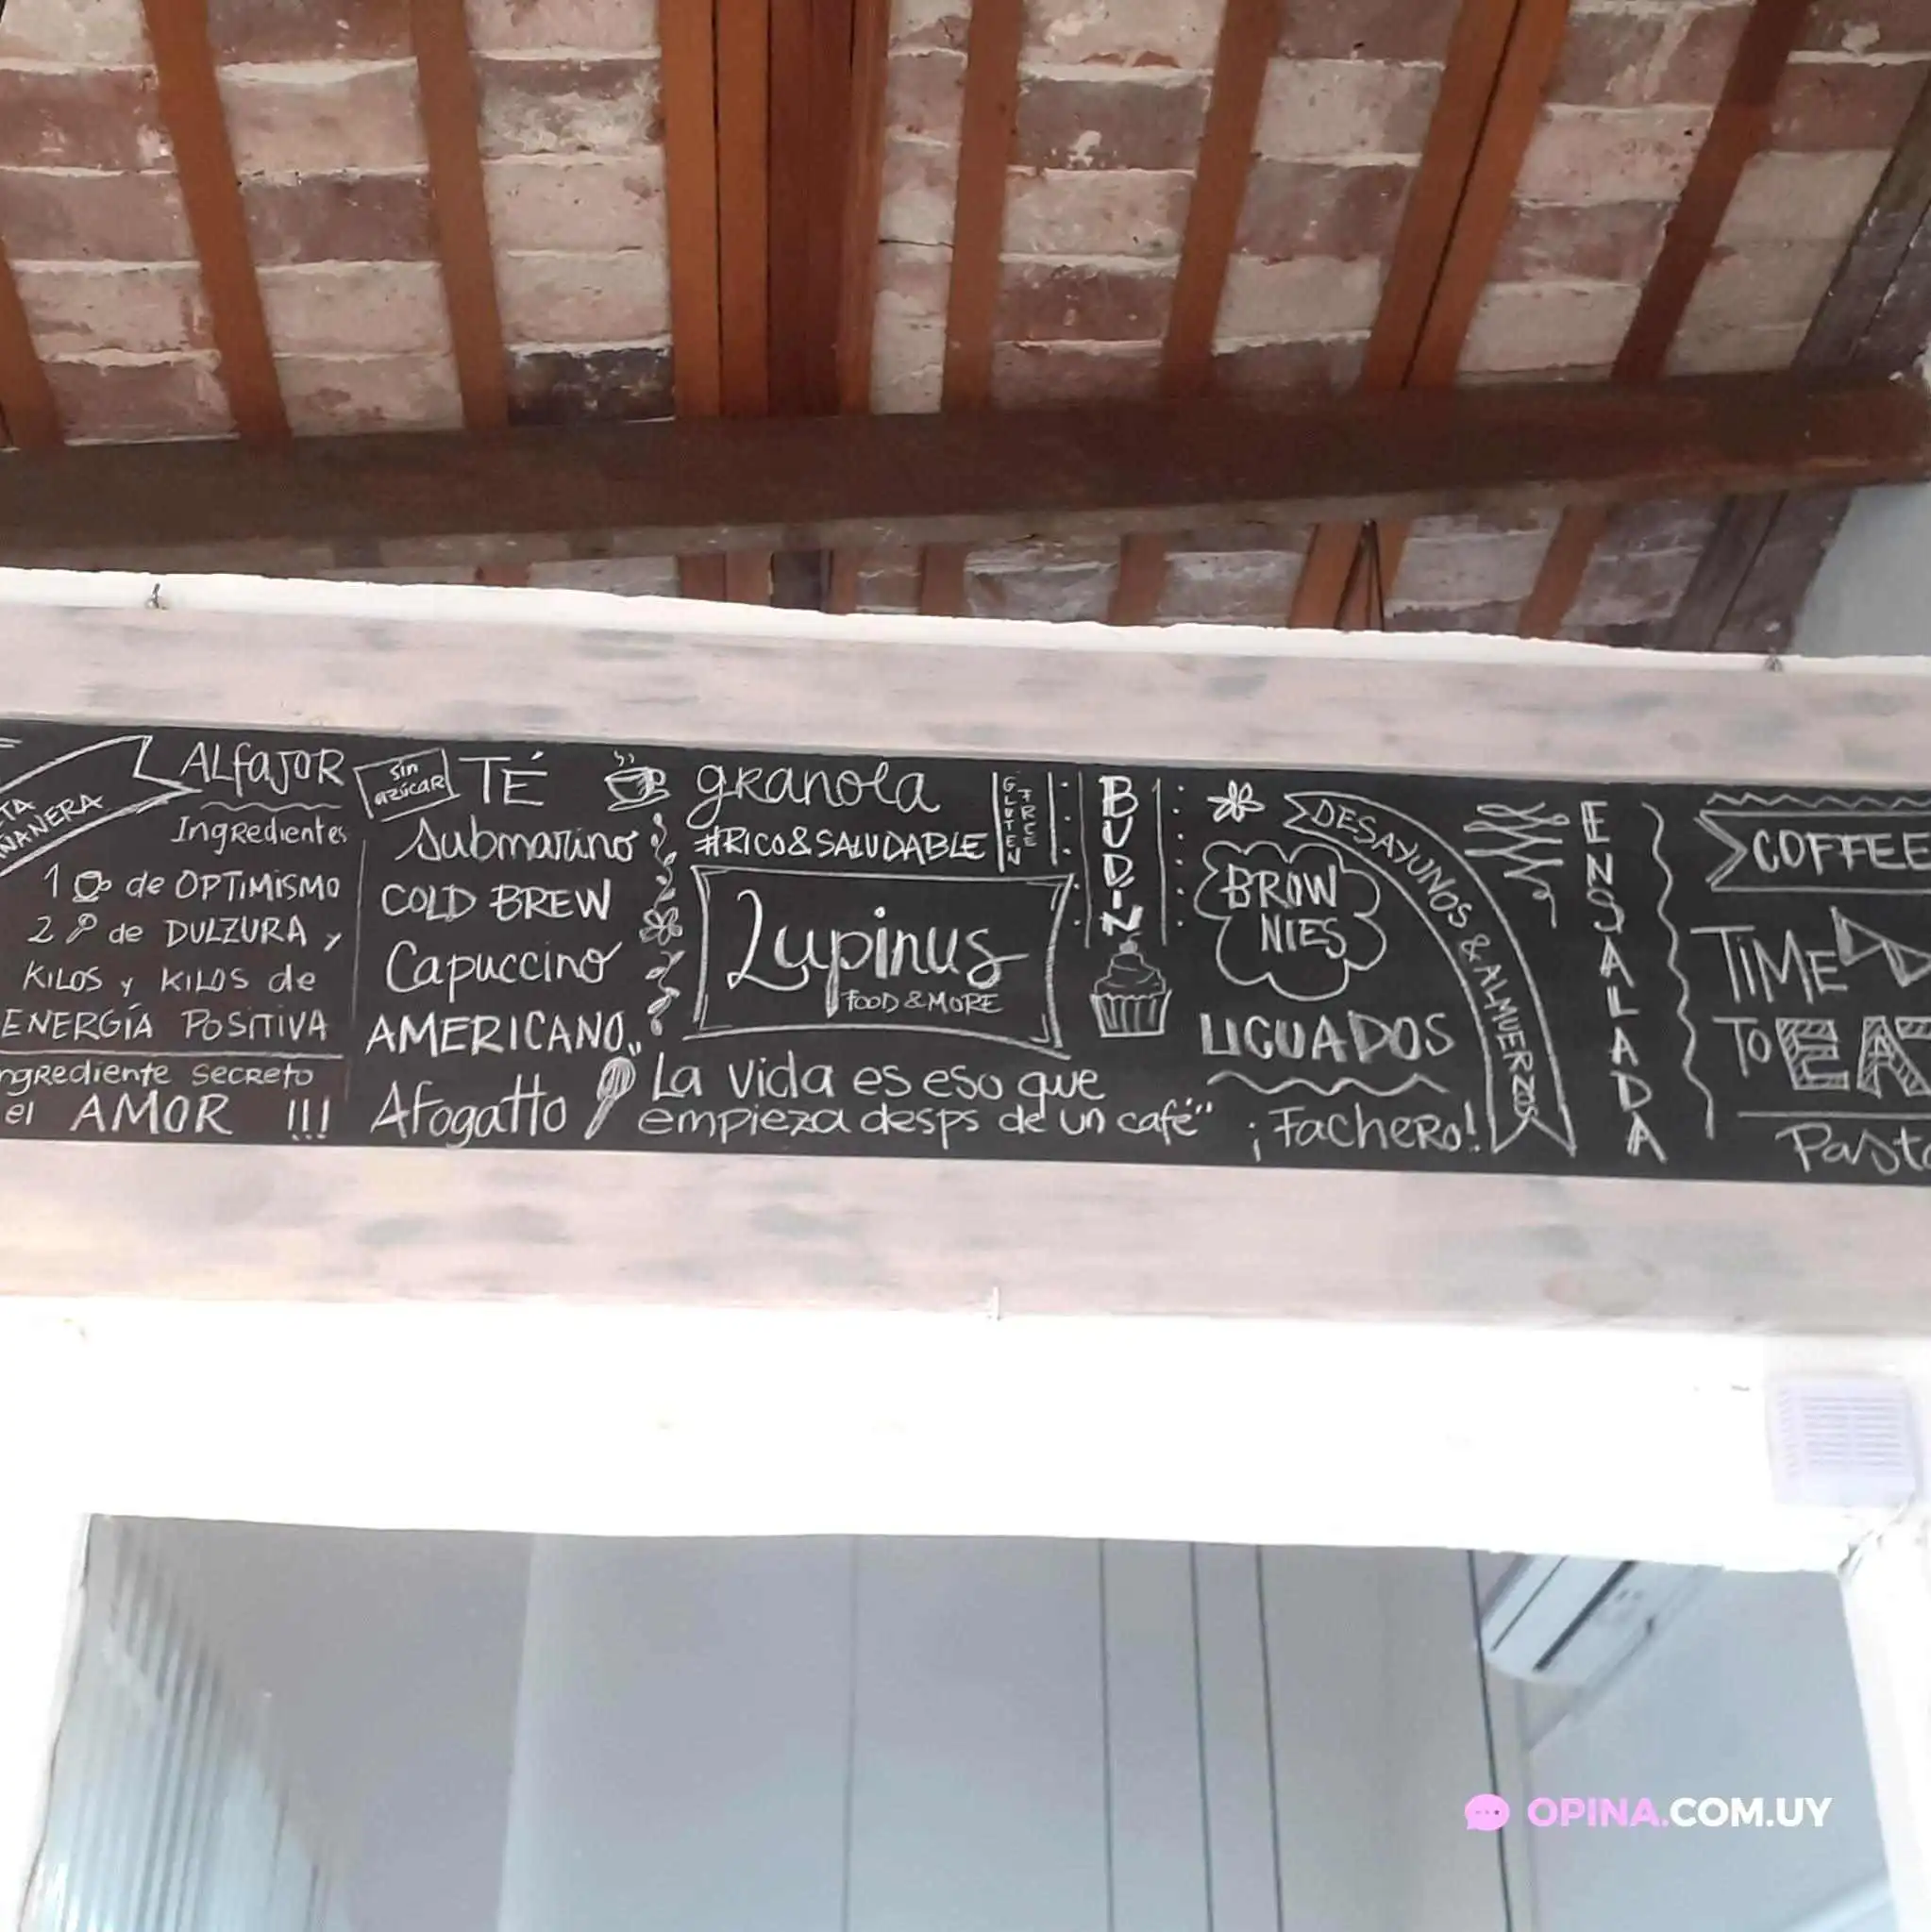 ALFAJOR
Ingredientes
1 de OPTIMISMO
2 de DULZURA y
KILOS y KILOS de
ENERGÍA POSITIVA
el AMOR !!!
sin
azúcar
TÉ
Submarino
COLD BREW
Capuccino
AMERICANO
Afogatto
granola
#RICO&SALUDABLE
GLUTEN
FREE
Lupinus
FOOD & MORE
"La vida es eso que
empieza desps de un café"
BUDIN
BROW
NIES
LICUADOS
¡Fachero!
DESAYUNOS & ALMUERZOS
ENSALADA
COFFEE
TIME
TO
OPINA.COM.UY